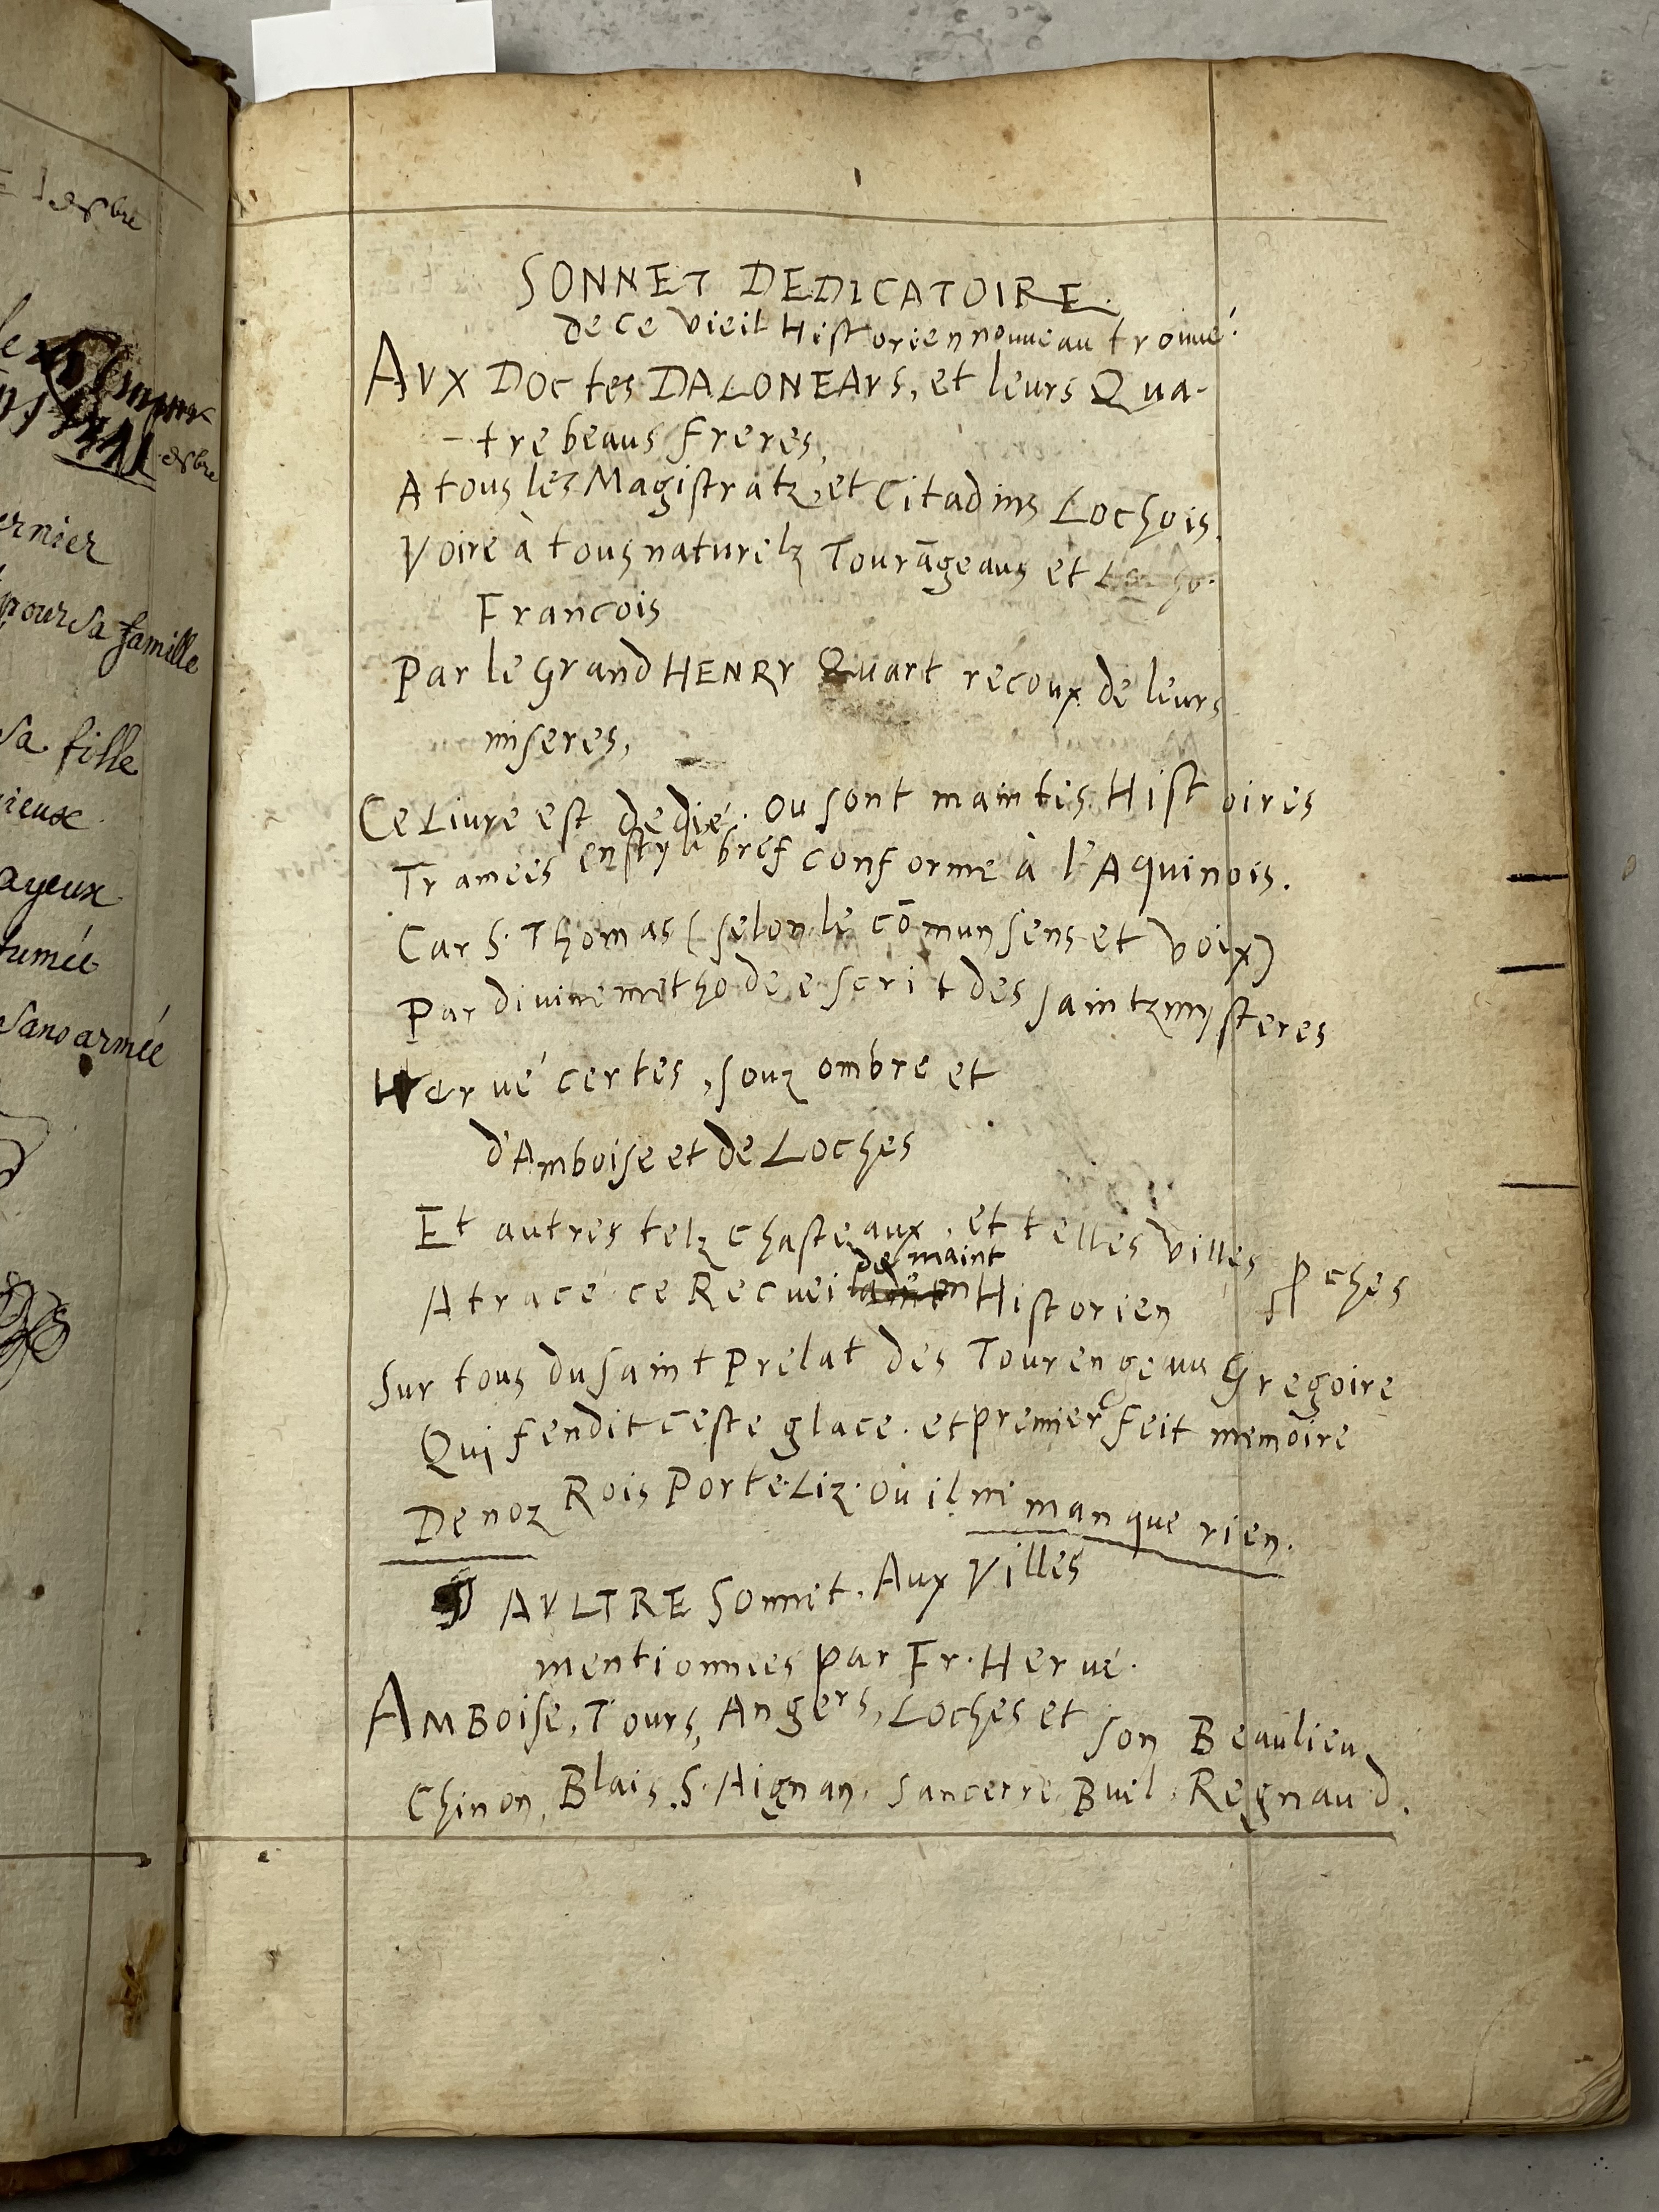 SONNET DEDICATOIRE.
de ce vieil Historien nouveau trouvé.
AVX DOCtes DALONEAVS, et leurs Qua-
-tre beaus freres,
A tous lez Magistratz, et Citadins Lochois.
Voire à tous naturelz Tourāgeaus et
Francois
Par le Grand HENRY Quart recoux de leurs
miseres,
Ce Livre est dedié. ou sont maintes Histoires
Tramees en style bref conforme à l'Aquinois.
Car S. Thomas (selon le cōmun sens et voix)
Par divine methode escrit des saintz mysteres
Hervé certes, souz ombre et
d'Amboise et de Loches
Et autres telz chasteaux, et telles villes pches
de maint
A tracé ce Recueil Historien
Sur tous du saint Prelat des Tourengeaus Gregoire
Qui fendit ceste glace. et premier feit memoire
De noz Rois Porte-Liz. où il ni manque rien.
AVLTRE Sonnet. Aux Villes
mentionnees par Fr. Hervé.
AMBoise, Tours, Angers, Loches et son Beaulieu,
Chinon, Blais, S. Aignan, Sancerre Bueil, Regnaud.
ernier
pour sa famille
sa fille
ieux
ayeux
tumée
sans armée